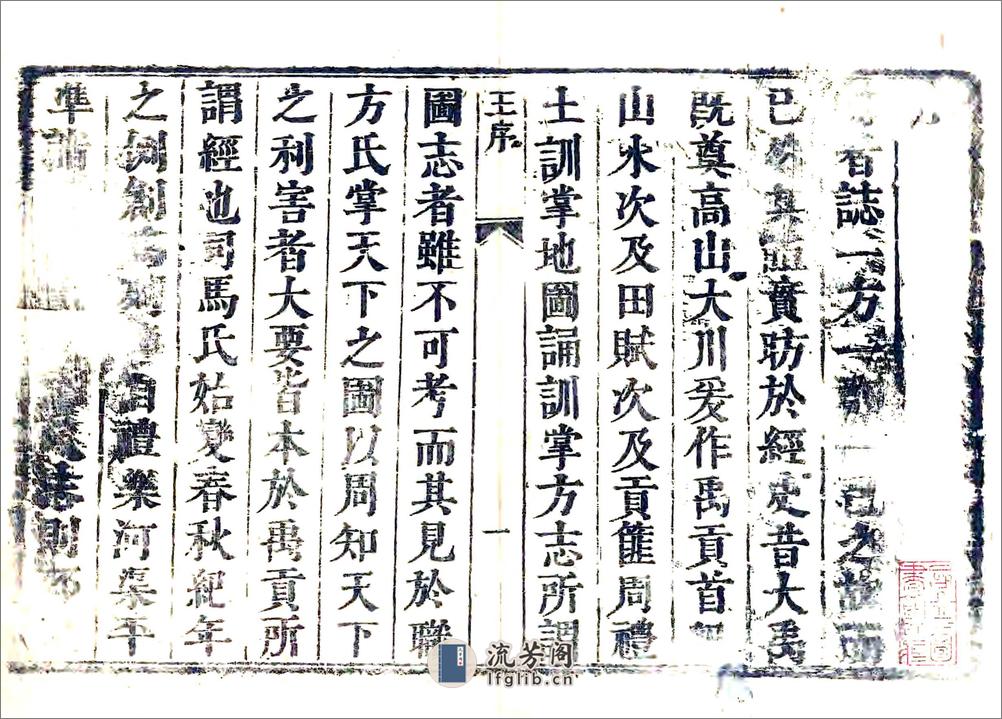 者誌一方一 一邑之
已 其 實昉於經史昔大禹
既奠高山大川爰作禹貢首
山水次及田賦次及貢篚周禮
土訓掌地圖誦訓掌方志所謂
王序
一
圖志者雖不可考而其見於職
方氏掌天下之圖以周知天下
之利害者大要皆本於禹貢所
謂經也司馬氏始變春秋紀年
之例創 自禮樂河渠平
準 則
流芳阁
lfglib.cn